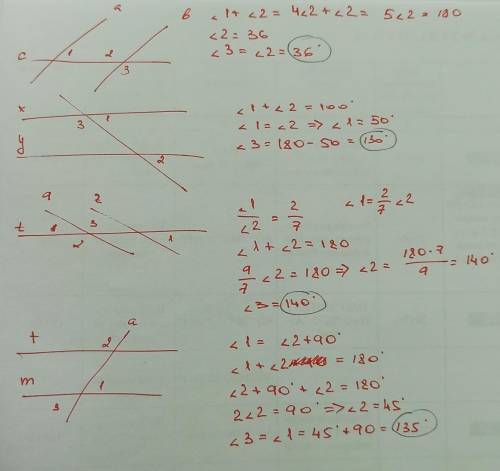 a
b
c
1
2
3
∠1+ ∠2 = 4∠2+∠2 = 5∠2 = 180
∠2 = 36
∠3 = ∠2 = 36°
x
y
3
1
2
∠1+∠2 = 100°
∠1 = ∠2 => ∠1 = 50°
∠3 = 180 - 50 = 130°
a
2
t
1
3
2
1
∠1/∠2 = 2/7
∠1 = 2/7 ∠2
∠1+∠2 = 180
9/7 ∠2 = 180 => ∠2 = 180·7/9 = 140°
∠3 = 140°
a
t
2
m
1
3
∠1 = ∠2+90°
∠1+∠2 = 180°
∠2+90°+∠2 = 180°
2∠2 = 90° => ∠2 = 45°
∠3 = ∠1 = 45°+90 = 135°